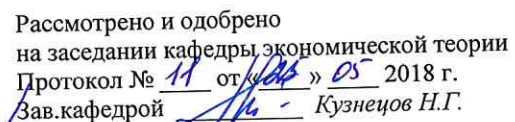 Рассмотрено и одобрено
на заседании кафедры экономической теории
Протокол № 11 от « » 05 2018 г.
Зав.кафедрой Кузнецов Н.Г.